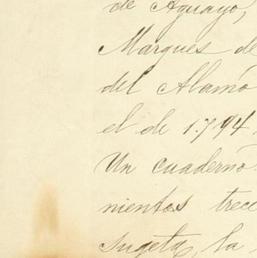 de Aguayo,
Marques de
del Alamo
el de 1794,
Un cuaderno
nientos trece
Sugeta, la